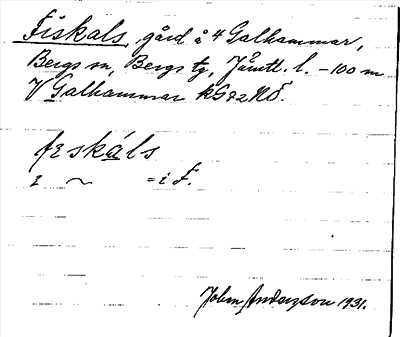 Fiskals, gård å 4 Galhammar,
Bergs sn, Bergs tg, Jämtl. l. – 100 m
V Galhammar kG72NÖ.
fɪskáls
ɪ ~ = i F.
John Anderzson 1931.